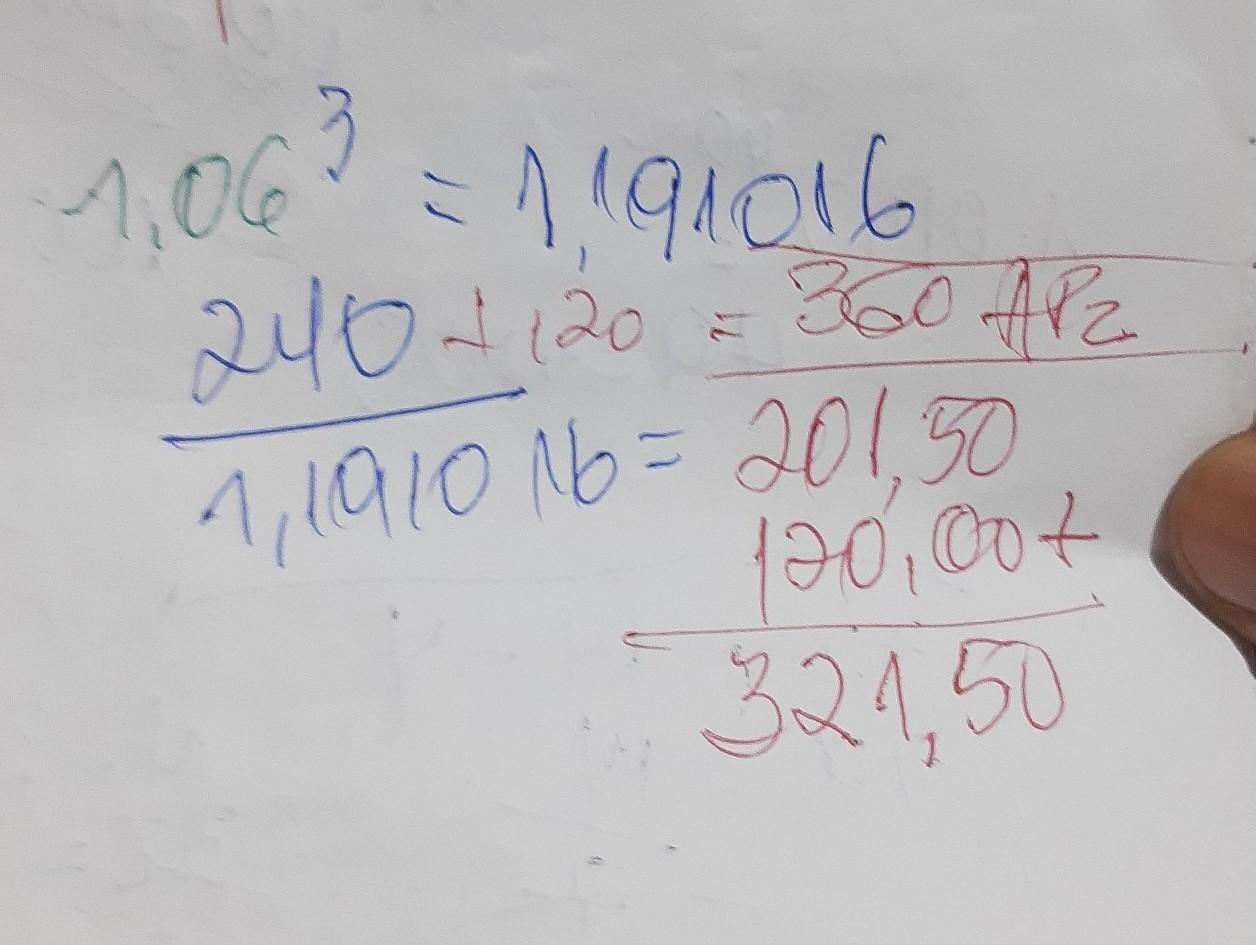 1,06³ = 1,191016
240 + 120 = 360 APz
1,191016 = 201,50
120,00 +
321,50